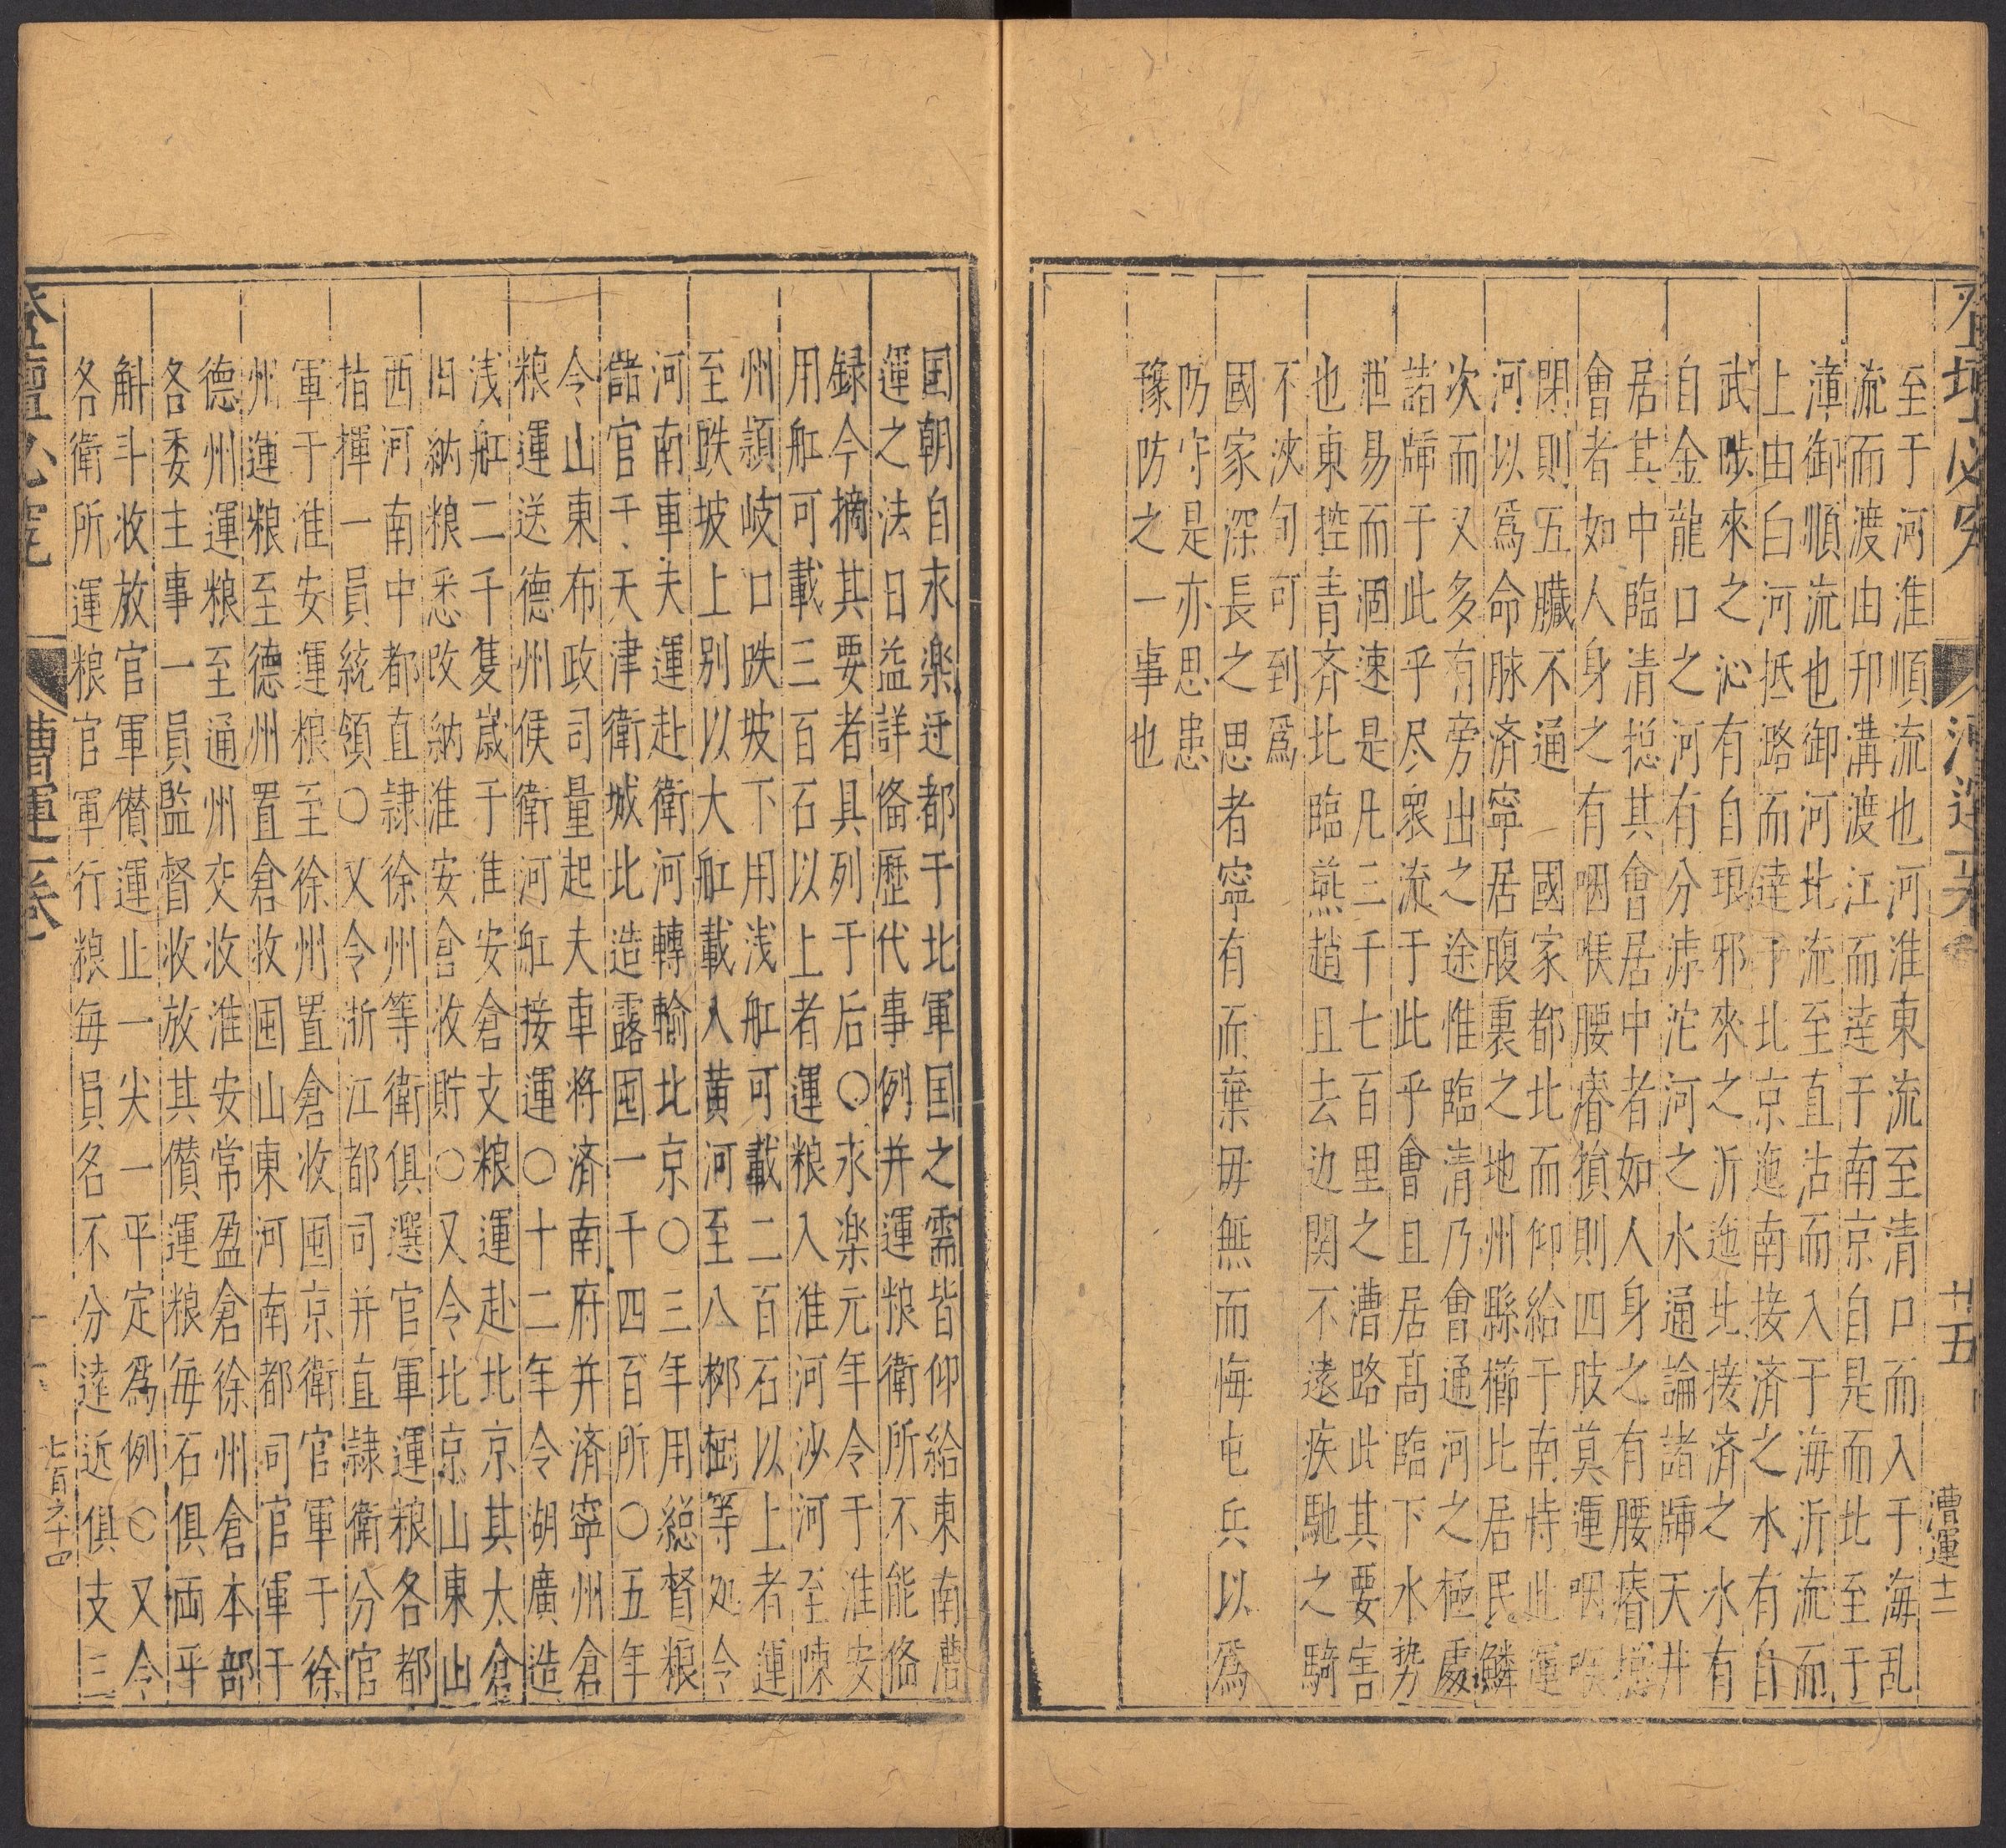 至于河淮順流也河淮東流至清口而入于海乱
流而渡由邗溝渡江而達于南京自是而北至于
漳御順流也御河北流至直沽而入于海沂流而
上由白河抵潞而達于北京迤南接済之水有自
武陟來之沁有自琅邪來之沂迤北接済之水有
自金龍口之河有分滹沱河之水通論諸牐天井
居其中臨清捴其會居中者如人身之有腰瘠
會者如人身之有咽喉腰瘠損則四肢莫運咽喉
閉則五臟不通　國家都北而仰給于南恃此運
河以爲命脉済寧居腹裏之地州縣櫛比居民鱗
次而又多有旁出之途惟臨清乃會通河之極處
諸牐于此乎尽衆流于此乎會且居髙臨下水势
泄易而涸速是凡三千七百里之漕路此其要害
也東控青齐北臨燕趙且去边関不遠疾馳之騎
不浹旬可到爲
國家深長之思者寧有而棄毋無而悔屯兵以爲
防守是亦思患
豫防之一事也
河運
廿五
漕運十二
囯朝自永楽迁都于北軍囯之需皆仰給東南漕
運之法日益詳俻歷代事例并運粮衛所不能俻
録今摘其要者具列于后〇永楽元年令于淮安
用舡可載三百石以上者運粮入淮河沙河至陳
州頴岐口跌坡下用浅舡可載二百石以上者運
至跌坡上别以大舡載入黄河至八栁樹等処令
河南車夫運赴衛河轉輸北京〇三年用総督粮
儲官于天津衛城北造露囤一千四百所〇五年
令山東布政司量起夫車将済南府并済寧州倉
粮運送德州倐衛河舡接運〇十二年令湖廣造
浅舡二千隻歳于淮安倉支粮運赴北京其太倉
旧納粮悉改納淮安倉收貯〇又令北京山東山
西河南中都直隷徐州等衛俱選官軍運粮各都
指揮一員統領〇又令浙江都司并直隷衛分官
軍于淮安運粮至徐州置倉收囤京衛官軍于徐
州運粮至德州置倉收囤山東河南都司官軍于
德州運粮至通州交收淮安常盈倉徐州倉本部
各委主事一員監督收放其儧運粮每石俱両平
斛斗收放官軍儧運止一尖一平定爲例〇又令
各衛所運粮官軍行粮每員名不分遠近俱支三
漕運一卷
七百六十四